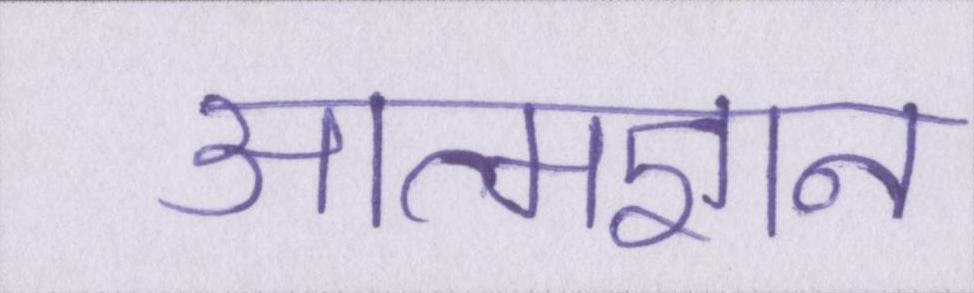 आत्मज्ञान